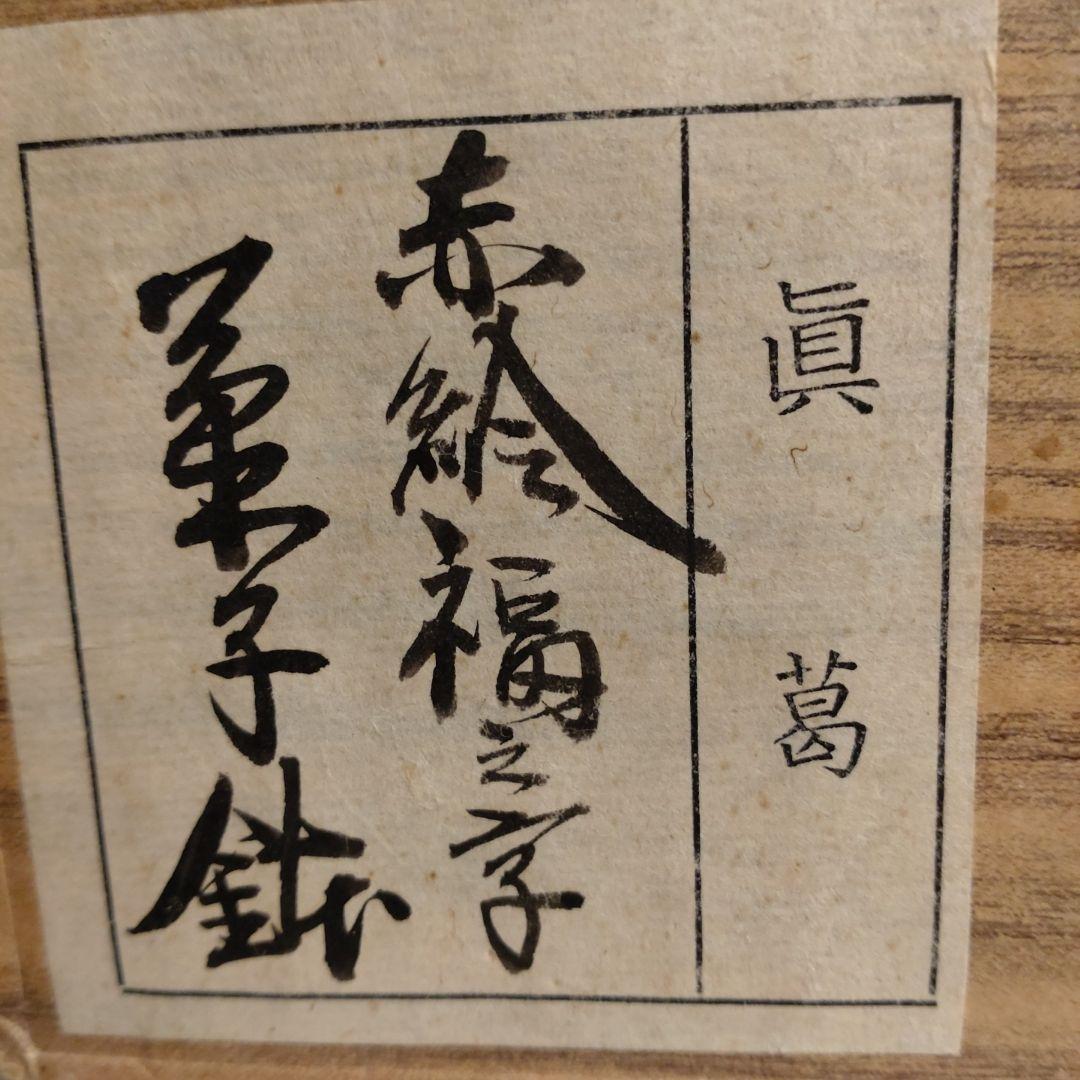 眞葛
赤絵福之字
菓子鉢